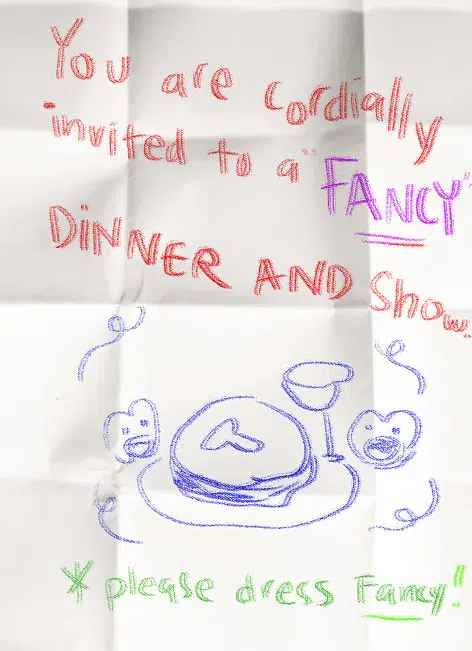 You are cordially
invited to a "FANCY"
DINNER AND Show.
* please dress Fancy!!